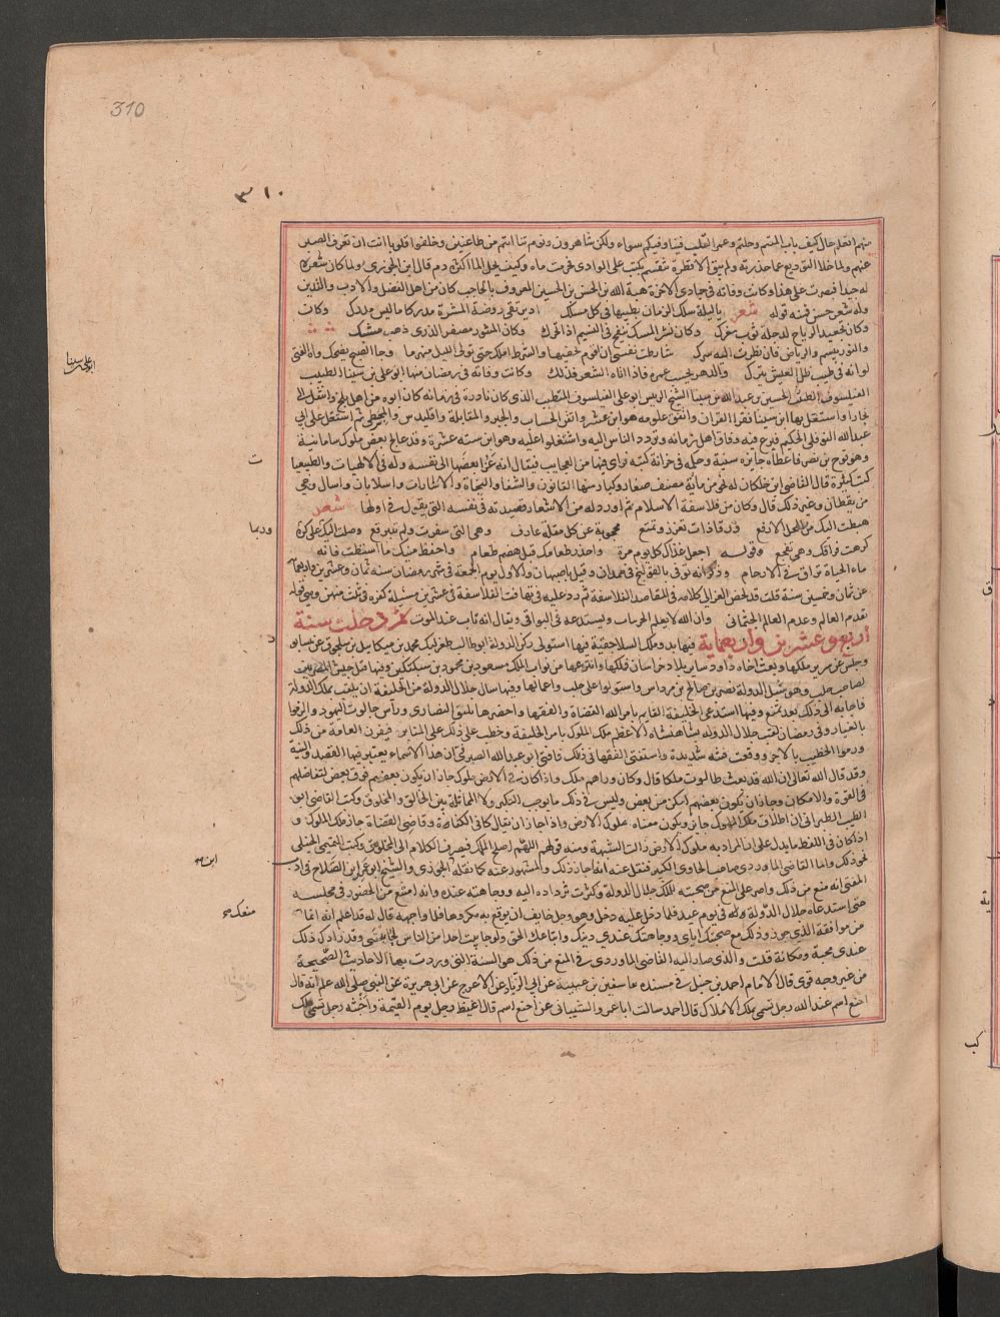 310
٣١٠
منهم انعل حال كيف باب المنتم وحلتم وعمر القلب فينا وفيكم سواء ولكن شاهرون ونوم تناءيتم من ظاعنين وخلفوا قلوبا ابت ان تعرف الصبر
عنهم ولما خلا التوديع عما حذرته ولم يبق الا نظرة تغتنم بكيت على الوادي فحرمت ماء وكيف يحل الماء اكثره دم قال ابن الجوزي ولما كان شعره
له جيدا اقتصرت على هذا وكانت وفاته في جمادى الاخرة هبة الله بن الحسن بن الحسين المعروف بالحاجب كان من اهل الفضل والادب والتدين
وله شعر حسن فمنه قوله شعر ياليلة سلك الزمان بطيبها في كل مسلك اذ نرتقي روضة المسرة مدركا ما ليس يدرك وكانت
وكان تجعيد الرياح لدجلة ثوب مفرك وكان نشر المسك ينفح في النسيم اذا تحرك وكان المنثور مصفر الذرى ذهب مشبك
والنور يبسم في الرياض فان نظرت اليه سرك شارطت نفسي ان اقوم بحقها والشرط املك حتى تولى الليل منهزما وجا الصبح يضحك واه الفتى
لوانه في طيب ظل العيش يترك والدهر يحسب عمره فاذا اتاه الشيب فذلك وكانت وفاته في رمضان منها ابو علي بن سينا الطبيب
ابو علي سينا
الفيلسوف الطيب الحسين بن عبد الله بن سينا الشيخ الرئيس ابو علي الفيلسوف المتطبب الذي كان نادرة في زمانه كان ابوه من اهل بلخ وانتقل الى
بخارا واشتغل بها ابن سينا فقرا القران واتقن علومه وهو ابن عشر واتقن الحساب والجبر والمقابلة واقليدس والمجسطي ثم اشتغل على ابي
عبد الله الناتلي الحكيم فبرع فيه وفاق اهل زمانه وتردد الناس اليه واشتغلوا عليه وهو ابن ستة عشرة وقد عالج بعض ملوك سامانية
وهو نوح بن نصر فاعطاه جايزة سنية وحكمه في خزانة كتبه فراى فيها من العجايب فيقال انه عزا بعضها الى نفسه وله في الالهيات والطبيعيا
ت
كتب كثيرة قال القاضي ابن خلكان له نحو من ماية مصنف صغار وكبار منها القانون والشفا والنجاة والاشارات وسلامان وابسال وحي
بن يقظان وغير ذلك قال وكان من فلاسفة الاسلام ثم اورد له من الاشعار قصيدته في نفسه التي يقول في اولها شعر
هبطت اليك من المحل الارفع ورقا ذات تعزز وتمنع محجوبة عن كل مقلة عارف وهي التي سفرت ولم تتبرقع وصلت اليك على كره
وربما
كرهت فراقك وهي تفجع وقوله اجعل غذاك كل يوم مرة واحذر طعامك قبل هضم طعام واحفظ منيك ما استطعت فانه
ماء الحياة تراق في الارحام وذكر انه توفي بالقولنج في همدان وقيل باصبهان والاول يوم الجمعة في شهر رمضان سنة ثمان وعشرين واربعماية
عن ثمان وخمسين سنة قلت قد لخص الغزالي كلامه في المقاصد الفلاسفة ثم رد عليه في تهافت الفلاسفة في عشرين مسئلة كفره في ثلث منهن وهي قوله
بقدم العالم وعدم العالم الجثماني وان الله لا يعلم الجزيات وبدعه في البواقي ويقال انه تاب عند الموت ثم دخلت سنة
اربع وعشرين واربعماية فيها بدو ملك السلاجقية فيها استولى ركن الدولة ابو طالب طغرلبك محمد بن ميكاييل بن سلجوق عن نيسابو
ر
وجلس على سرير ملكها وبعث اخاه داود ساير بلاد خراسان فملكها وانتزعها من نواب الملك مسعود بن محمود بن سبكتكين وفيها قتل جيش المصريين
لصاحب حلب وهو شبل الدولة نصر بن صالح بن مرداس واستولوا على حلب واعمالها وفيها سال جلال الدولة من الخليفة ان يلقب بملك الدولة
فاجابه الى ذلك بعد تمنع وفيها استدعى الخليفة القايم بامر الله القضاة والفقها واحضر جاثليق النصارى وراس جالوت اليهود والزموا
بالغيار وفي رمضان لقب جلال الدولة شاهنشاه الاعظم ملك الملوك بامر الخليفة وخطب على ذلك على المنابر فنفرن العامة من ذلك
ورموا الخطيب بالاجر ووقعت فتنة شديدة واستفتى الفقها في ذلك فافتى ابو عبد الله الصيمري ان هذا الاسماء يعتبر فيها القصد والنية
وقد قال الله تعالى ان الله قد بعث طالوت ملكا قال وكان وراهم ملك واذا كان في الارض ملوك جاز ان يكون بعضهم فوق بعض لتفاضلهم
في القوة والامكان وجاز ان يكون بعضهم امكن من بعض وليس في ذلك ما يوجب النكير ولا المماثلة بين الخالق والمخلوق وكتب القاضي ابو
الطيب الطبري ان اطلاق ملك الملوك جايز ويكون معناه ملوك الارض واذا جاز ان يقال كافي الكفاة وقاضي القضاة جاز ملك الملوك و
اذا كان في اللفظ ما يدل على ان المراد به ملوك الارض زالت الشبهة ومنه قولهم اللهم اصلح الملك فيصرف الكلام الى المخلوقين وكتب التميمي الحنبلي
نحو ذلك واما القاضي الماوردي صاحب الحاوي الكبير فنقل عنه انه اجاز ذلك والمشهور عنه كما نقله الجوزي والشيخ ابو عمر ابن الصلاح في ادب
ابن صح
المفتي انه منع من ذلك واصر على المنع من صحبته للملك جلال الدولة وكثرت ترداده اليه ووجاهته عنده وانه امتنع من الحضور في مجلسه
حتى استدعاه جلال الدولة في يوم عيد فلما دخل عليه دخل وهو وجل خايف ان يوقع به مكروها فلما واجهه قال له قد اعلم انه انما
منعك صح
من موافقة الذي جوز ذلك مع صحبتك اياي ووجاهتك عندي دينك واتباعك الحق ولو حابيت احدا من الناس لحابيتني وقد زادك ذلك
عندي محبة ومكانة قلت والذي صار اليه القاضي الماوردي في المنع من ذلك هو السنة التي وردت بها الاحاديث الصحيحة
من غير وجه قوي قال الامام احمد بن حنبل في مسنده ثنا سفيان بن عيينة عن ابي الزناد عن الاعرج عن ابي هريرة عن النبي صلى الله عليه انه قال
اخنع اسم عند الله رجل تسمى ملك الاملاك قال احمد سالت ابا عمرو الشيباني عن اخنع اسم قال اغيظ رجل يوم القيمة واخبثه رجل تسمى ملك